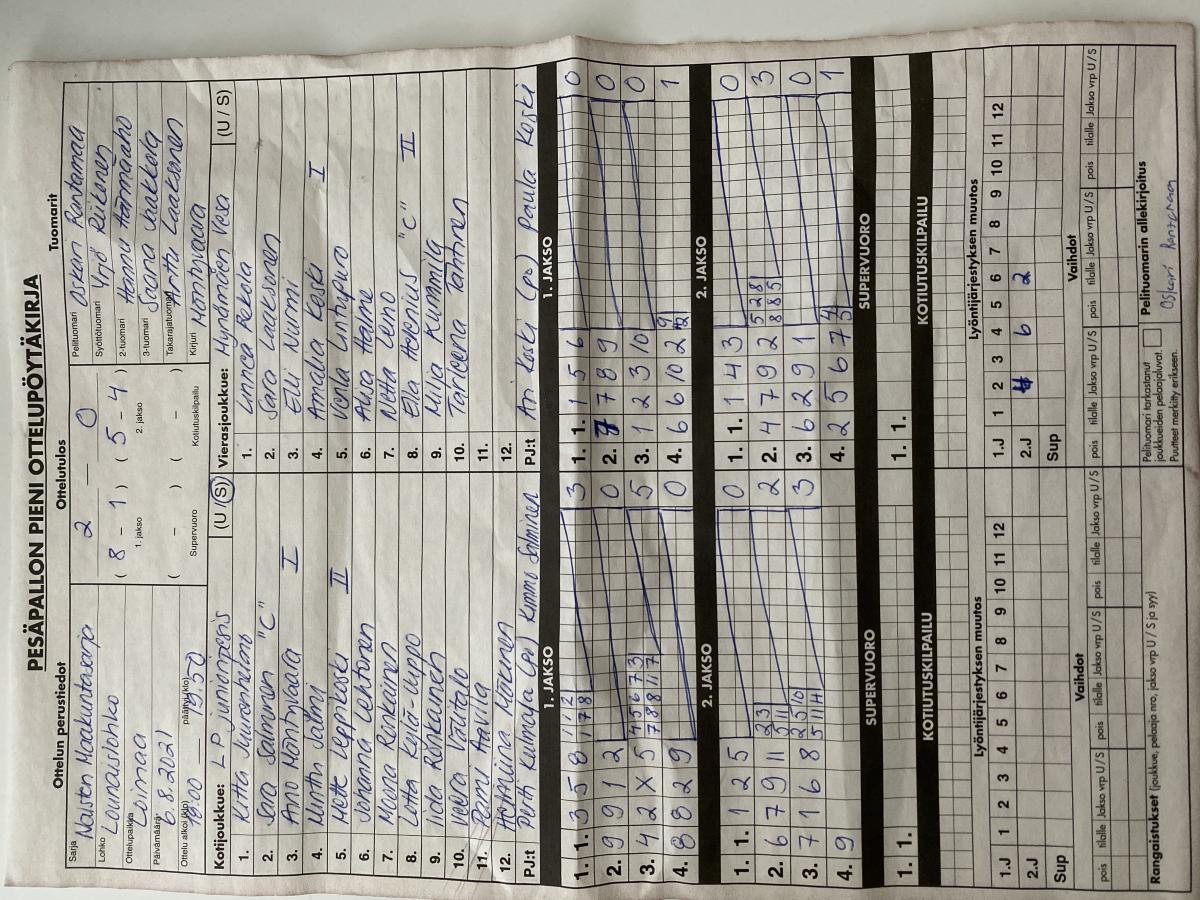 PESÄPALLON PIENI OTTELUPÖYTÄKIRJA
Ottelun perustiedot
Ottelutulos
Tuomarit
Sarja Naisten Maakuntasarja
Lohko Lounaislohko
Ottelupaikka Loimaa
Päivämäärä 6.8.2021
Ottelu alkoi (klo) 18.00 päättyi (klo) 19.50
2 — 0
( 8 - 1 ) ( 5 - 4 )
1. jakso 2. jakso
( - ) ( - )
Supervuoro Kotiutuskilpailu
Pelituomari Oskari Rantamaa
Syöttötuomari Yrjö Reikonen
2-tuomari Hannu Härmänaho
3-tuomari Saana Laakkola
Takarajatuomari Arttu Laaksonen
Kirjuri Mäntyvaara
Kotijoukkue: L P junioripesis (U / S)
1. Riitta Juurenhelmi
2. Sara Salminen "C"
3. Aino Mäntyvaara I
4. Minttu Jalmi
5. Mette Leppikoski II
6. Johanna Lehtonen
7. Moona Ronkainen
8. Lotta Keijä-Unppo
9. Iida Rönkainen
10. Veera Vautalo
11. Pami Aavila
12. Hermiina Mäkinen
PJ:t Pertti Kulmala (po) Kimmo Salminen
Vierasjoukkue: Mynämäen Vesa (U / S)
1. Linnea Pekola
2. Sara Laaksonen
3. Elli Nurmi
4. Amalia Koski I
5. Venla Lintupuro
6. Aura Haime
7. Netta Leino
8. Ella Heenius "C" II
9. Milja Kummila
10. Tareena Tanninen
11.
12.
PJ:t Ari Koski (po) Paula Koski
1. JAKSO
1. JAKSO
1. 1. 3 5 8 1 1 1 2 1 7 8 3
2. 9 9 1 2 0
3. 4 2 X 5 4 5 6 7 3 7 8 8 11 7 5
4. 8 8 2 9 0
1. 1. 1 5 6 0
2. 7 7 8 9 0
3. 1 2 3 10 0
4. 6 6 10 2 9 2 1
2. JAKSO
2. JAKSO
1. 1. 1 2 5 0
2. 6 7 9 11 2 3 5 11 2
3. 7 1 6 8 2 5 10 5 11 4 3
4. 9
1. 1. 1 4 3 0
2. 4 7 9 2 5 2 8 8 8 5 3
3. 6 2 9 1 0
4. 2 5 6 7 4 5 1
SUPERVUORO
SUPERVUORO
1. 1.
1. 1.
KOTIUTUSKILPAILU
KOTIUTUSKILPAILU
Lyöntijärjestyksen muutos
Lyöntijärjestyksen muutos
1.J 1 2 3 4 5 6 7 8 9 10 11 12
2.J
Sup
1.J 1 2 3 4 5 6 7 8 9 10 11 12
2.J 6 2
Sup
Vaihdot
Vaihdot
pois tilalle Jakso vrp U/S pois tilalle Jakso vrp U/S pois tilalle Jakso vrp U/S
pois tilalle Jakso vrp U/S pois tilalle Jakso vrp U/S pois tilalle Jakso vrp U/S
Rangaistukset (joukkue, pelaaja nro, jakso vrp U / S ja syy)
Pelituomari tarkastanut
joukkueiden pelaajaluvat.
Puutteet merkitty erikseen.
Pelituomarin allekirjoitus
Oskari Rantamaa